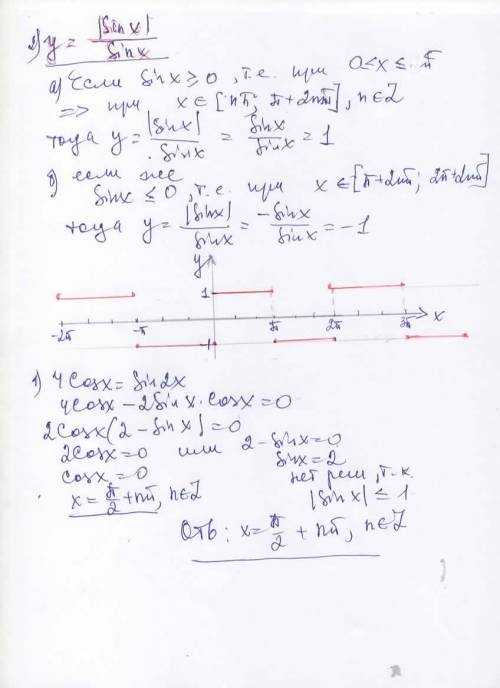 2) y = |Sin x| / Sin x
а) Если Sin x ≥ 0, т.е. при 0<x≤π
=> при x ∈ [nπ; π+2nπ], n∈Z
тогда y = |Sin x| / Sin x = Sin x / Sin x = 1
б) если же
Sin x ≤ 0, т.е. при x ∈ [π+2nπ; 2π+2nπ]
тогда y = |Sin x| / Sin x = -Sin x / Sin x = -1
y
1
-2π -π π 2π 3π x
-1
1) 4Cosx = Sin2x
4Cosx - 2Sin x · Cosx = 0
2Cosx(2 - Sin x) = 0
2Cosx = 0 или 2 - Sinx = 0
Cosx = 0 Sinx = 2
x = π/2 + nπ, n∈Z нет реш, т.к.
|Sin x| ≤ 1
Отв: x = π/2 + nπ, n∈Z